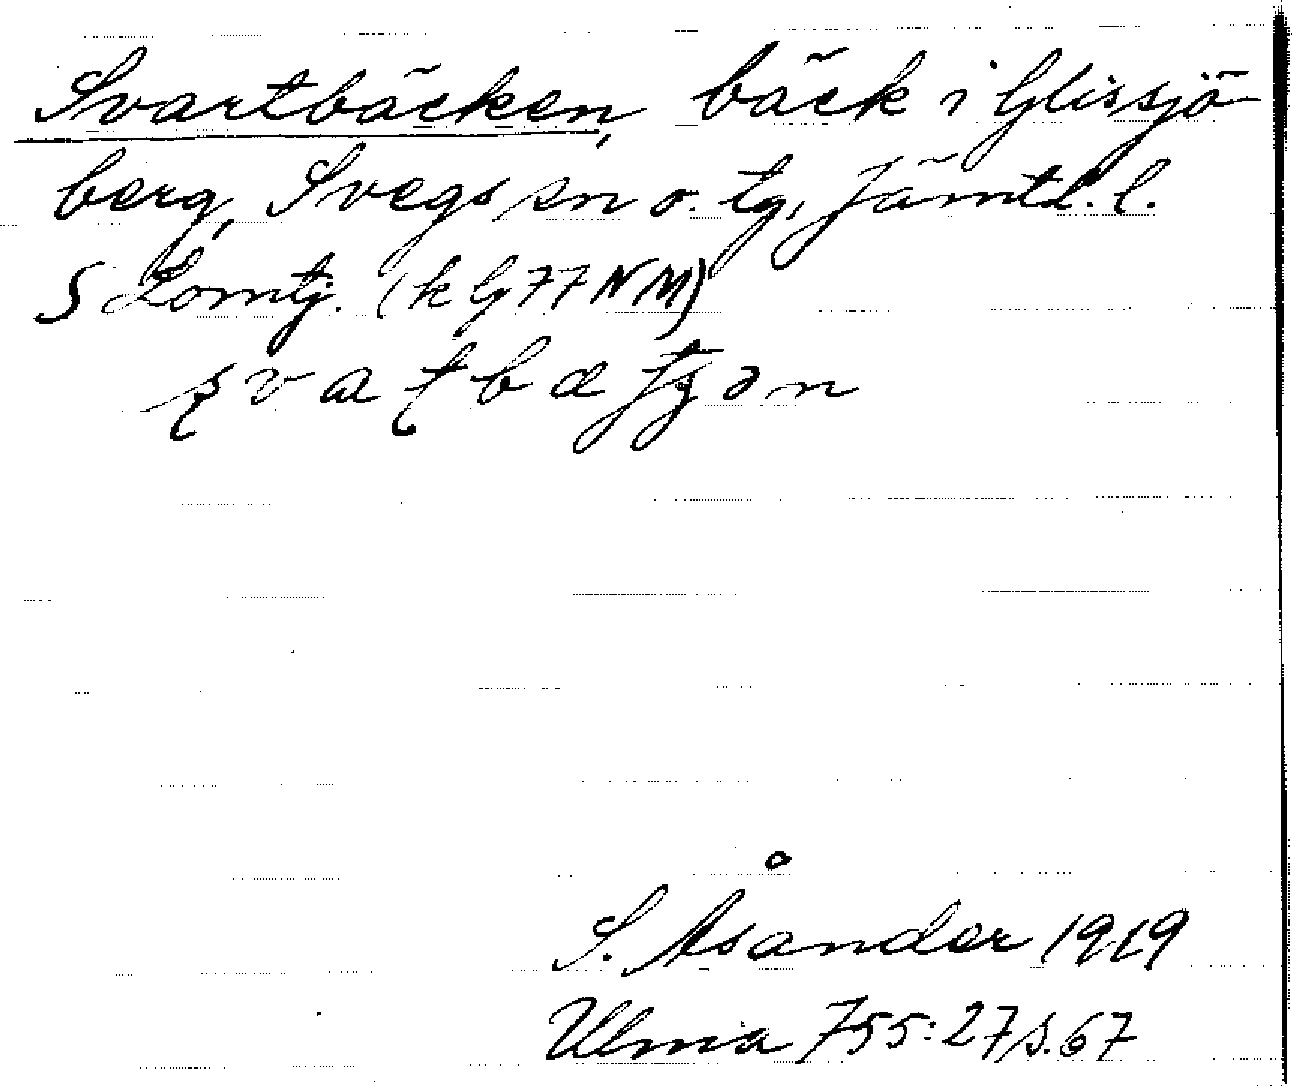 Svartbäcken, bäck i Glissjö-
berg, Svegs sn o. tg, Jämtl. l.
S Lomtj. (k G 77 NM)
S. Åsander 1919
Ulma 755:27 s. 67